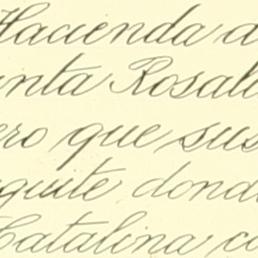 Hacienda d
nta Rosal
ero que sus
quite, dond
Catalina co